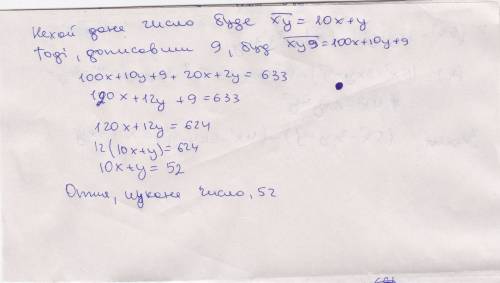 Нехай дане число буде xy = 10x+y
тоді, дописавши 9, буд xy9 = 100x+10y+9
100x+10y+9+20x+2y = 633
120x+12y+9=633
120x+12y=624
12(10x+y)=624
10x+y=52
Отже, шукане число, 52